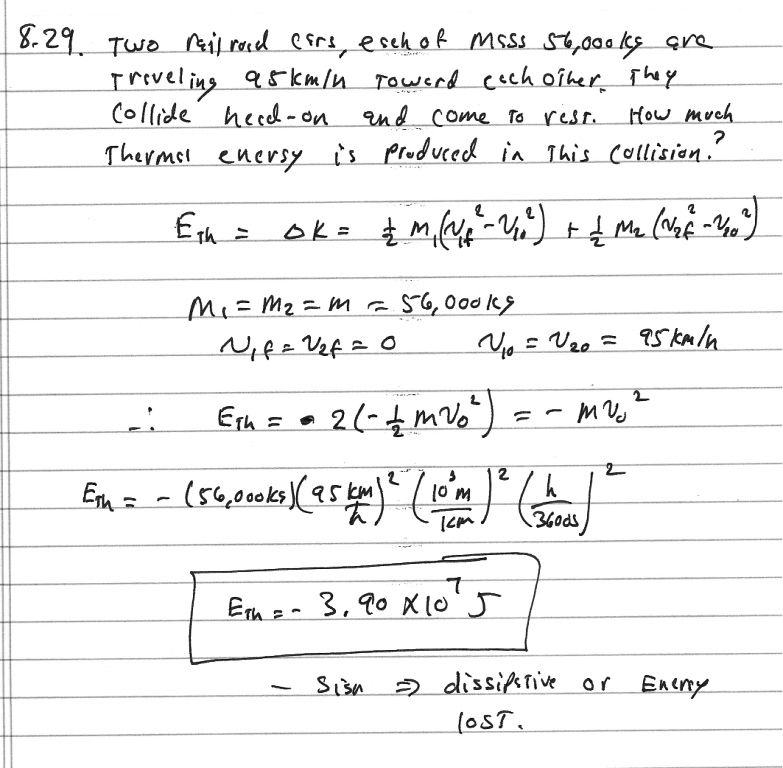 8.29. Two railroad cars, each of mass 56,000 kg are
traveling 95 km/h toward each other. They
collide head-on and come to rest. How much
Thermal energy is produced in this collision?
E_Th = ΔK = ½ m₁(v₁f² - v₁₀²) + ½ m₂ (v₂f² - v₂₀²)
m₁ = m₂ = m = 56,000 kg
v₁f = v₂f = 0 v₁₀ = v₂₀ = 95 km/h
∴ E_Th = 2(-½ mv₀²) = - mv₀²
E_Th = - (56,000 kg)(95 km/h)² (10³m/1km)² (h/3600s)²
E_Th = - 3.90 X10⁷ J
- sign ⇒ dissipative or Energy
lost.